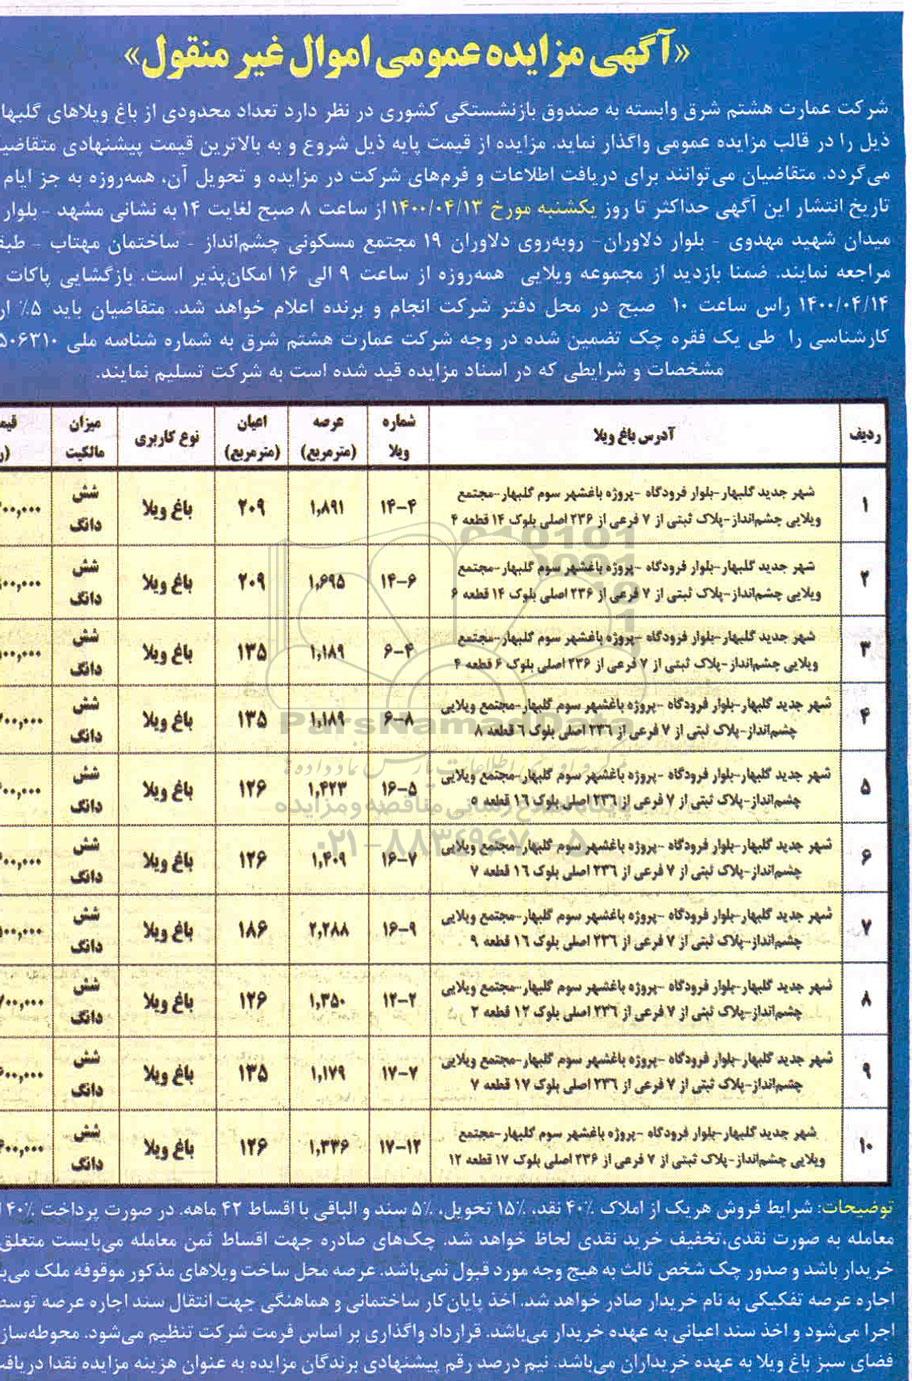 «آگهی مزایده عمومی اموال غیر منقول»
شرکت عمارت هشتم شرق وابسته به صندوق بازنشستگی کشوری در نظر دارد تعداد محدودی از باغ ویلاهای گلبهار
ذیل را در قالب مزایده عمومی واگذار نماید. مزایده از قیمت پایه ذیل شروع و به بالاترین قیمت پیشنهادی
می‌گردد. متقاضیان می‌توانند برای دریافت اطلاعات و فرم‌های شرکت در مزایده و تحویل آن، همه‌روزه به جز ایام
تاریخ انتشار این آگهی حداکثر تا روز یکشنبه مورخ ۱۴۰۰/۰۴/۱۳ از ساعت ۸ صبح لغایت ۱۴ به نشانی مشهد - بلوار
میدان شهید مهدوی - بلوار دلاوران- روبه‌روی دلاوران ۱۹ مجتمع مسکونی چشم‌انداز - ساختمان مهتاب -
مراجعه نمایند. ضمنا بازدید از مجموعه ویلایی همه‌روزه از ساعت ۹ الی ۱۶ امکان‌پذیر است. بازگشایی پاکات
۱۴۰۰/۰۴/۱۴ راس ساعت ۱۰ صبح در محل دفتر شرکت انجام و برنده اعلام خواهد شد. متقاضیان باید ۵٪
کارشناسی را طی یک فقره چک تضمین شده در وجه شرکت عمارت هشتم شرق به شماره شناسه ملی ۵۰۶۳۱۰
مشخصات و شرایطی که در اسناد مزایده قید شده است به شرکت تسلیم نمایند.
ردیف آدرس باغ ویلا شماره ویلا عرصه (مترمربع) اعیان (مترمربع) نوع کاربری میزان مالکیت
۱ شهر جدید گلبهار-بلوار فرودگاه -پروژه باغشهر سوم گلبهار-مجتمع
ویلایی چشم‌انداز-پلاک ثبتی از ۷ فرعی از ۲۳۶ اصلی بلوک ۱۴ قطعه ۴ ۱۴-۴ ۱,۸۹۱ ۲۰۹ باغ ویلا شش دانگ ۰۰,۰۰۰
۲ شهر جدید گلبهار-بلوار فرودگاه -پروژه باغشهر سوم گلبهار-مجتمع
ویلایی چشم‌انداز-پلاک ثبتی از ۷ فرعی از ۲۳۶ اصلی بلوک ۱۴ قطعه ۶ ۱۴-۶ ۱,۶۹۵ ۲۰۹ باغ ویلا شش دانگ ۰۰,۰۰۰
۳ شهر جدید گلبهار-بلوار فرودگاه -پروژه باغشهر سوم گلبهار-مجتمع
ویلایی چشم‌انداز-پلاک ثبتی از ۷ فرعی از ۲۳۶ اصلی بلوک ۶ قطعه ۴ ۶-۴ ۱,۱۸۹ ۱۳۵ باغ ویلا شش دانگ ۰۰,۰۰۰
۴ شهر جدید گلبهار-بلوار فرودگاه -پروژه باغشهر سوم گلبهار-مجتمع ویلایی
چشم‌انداز-پلاک ثبتی از ۷ فرعی از ۲۳۶ اصلی بلوک ۶ قطعه ۸ ۶-۸ ۱,۱۸۹ ۱۳۵ باغ ویلا شش دانگ ۰۰,۰۰۰
۵ شهر جدید گلبهار-بلوار فرودگاه -پروژه باغشهر سوم گلبهار-مجتمع ویلایی
چشم‌انداز-پلاک ثبتی از ۷ فرعی از ۲۳۶ اصلی بلوک ۱۶ قطعه ۵ ۱۶-۵ ۱,۴۲۳ ۱۲۶ باغ ویلا شش دانگ ۰۰,۰۰۰
۶ شهر جدید گلبهار-بلوار فرودگاه -پروژه باغشهر سوم گلبهار-مجتمع ویلایی
چشم‌انداز-پلاک ثبتی از ۷ فرعی از ۲۳۶ اصلی بلوک ۱۶ قطعه ۷ ۱۶-۷ ۱,۴۰۹ ۱۲۶ باغ ویلا شش دانگ ۰۰,۰۰۰
۷ شهر جدید گلبهار-بلوار فرودگاه -پروژه باغشهر سوم گلبهار-مجتمع ویلایی
چشم‌انداز-پلاک ثبتی از ۷ فرعی از ۲۳۶ اصلی بلوک ۱۶ قطعه ۹ ۱۶-۹ ۲,۲۸۸ ۱۸۶ باغ ویلا شش دانگ ۰۰,۰۰۰
۸ شهر جدید گلبهار-بلوار فرودگاه -پروژه باغشهر سوم گلبهار-مجتمع ویلایی
چشم‌انداز-پلاک ثبتی از ۷ فرعی از ۲۳۶ اصلی بلوک ۱۲ قطعه ۲ ۱۲-۲ ۱,۳۵۰ ۱۲۶ باغ ویلا شش دانگ ۰۰,۰۰۰
۹ شهر جدید گلبهار-بلوار فرودگاه -پروژه باغشهر سوم گلبهار-مجتمع ویلایی
چشم‌انداز-پلاک ثبتی از ۷ فرعی از ۲۳۶ اصلی بلوک ۱۷ قطعه ۷ ۱۷-۷ ۱,۱۷۹ ۱۳۵ باغ ویلا شش دانگ ۰۰,۰۰۰
۱۰ شهر جدید گلبهار-بلوار فرودگاه -پروژه باغشهر سوم گلبهار-مجتمع
ویلایی چشم‌انداز-پلاک ثبتی از ۷ فرعی از ۲۳۶ اصلی بلوک ۱۷ قطعه ۱۲ ۱۷-۱۲ ۱,۳۳۶ ۱۲۶ باغ ویلا شش دانگ ۰۰,۰۰۰
ParsNamadData
پایگاه اطلاع رسانی مناقصه و مزایده
۰۲۱-۸۸۳۴۹۶۷۰-۵
توضیحات: شرایط فروش هریک از املاک ۴۰٪ نقد، ۱۵٪ تحویل، ۵٪ سند و الباقی با اقساط ۴۲ ماهه. در صورت پرداخت ۴۰٪
معامله به صورت نقدی،تخفیف خرید نقدی لحاظ خواهد شد. چک‌های صادره جهت اقساط ثمن معامله می‌بایست متعلق
خریدار باشد و صدور چک شخص ثالث به هیچ وجه مورد قبول نمی‌باشد. عرصه محل ساخت ویلاهای مذکور موقوفه ملک
اجاره عرصه تفکیکی به نام خریدار صادر خواهد شد. اخذ پایان‌کار ساختمانی و هماهنگی جهت انتقال سند اجاره عرصه توسط
اجرا می‌شود و اخذ سند اعیانی به عهده خریدار می‌باشد. قرارداد واگذاری بر اساس فرمت شرکت تنظیم می‌شود.
فضای سبز باغ ویلا به عهده خریداران می‌باشد. نیم درصد رقم پیشنهادی برندگان مزایده به عنوان هزینه مزایده نقدا